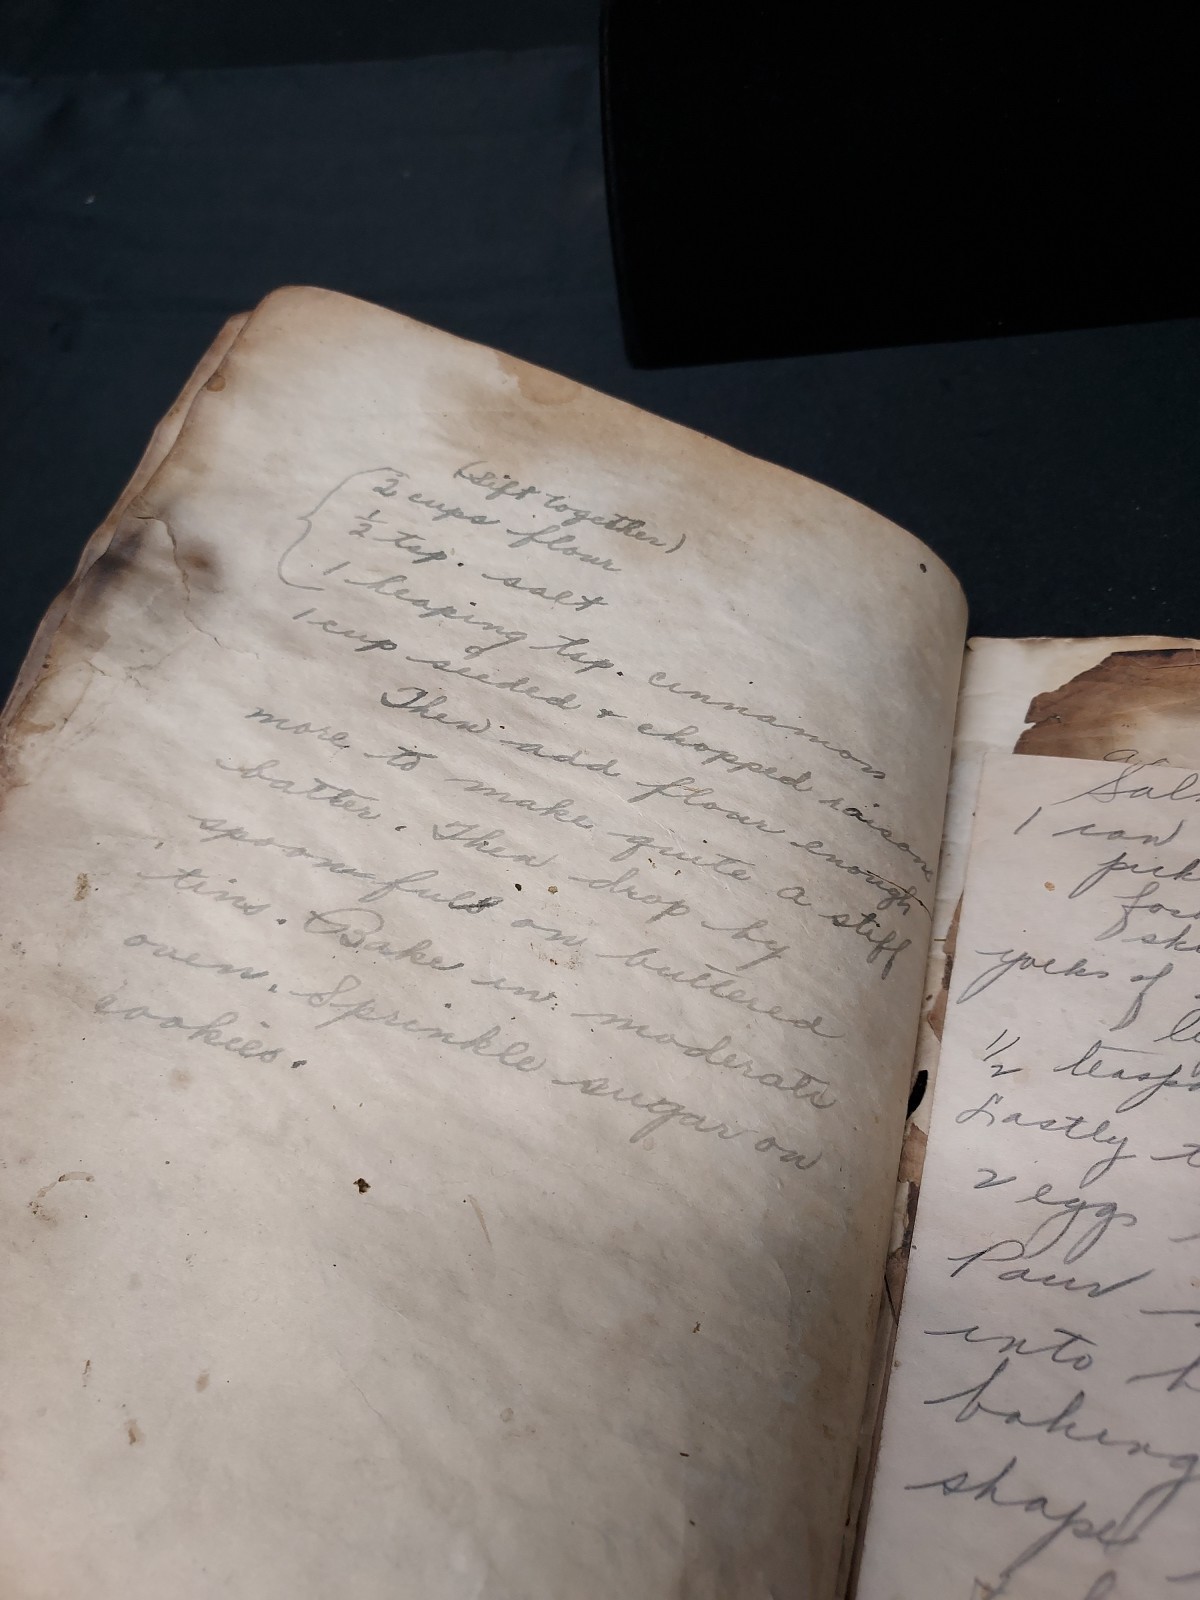 (Sift together)
2 cups flour
1/2 tsp. salt
1 heaping tsp. cinnamon
1 cup seeded & chopped raisons
Then add flour enough
more to make quite a stiff
batter. Then drop by
spoonfulls on buttered
tins. Bake in moderate
oven. Sprinkle sugar on
cookies.
Sal
1 can
pick
yoeks of
1/2 teasp
Lastly t
2 eggs
Pour
into
baking
shape